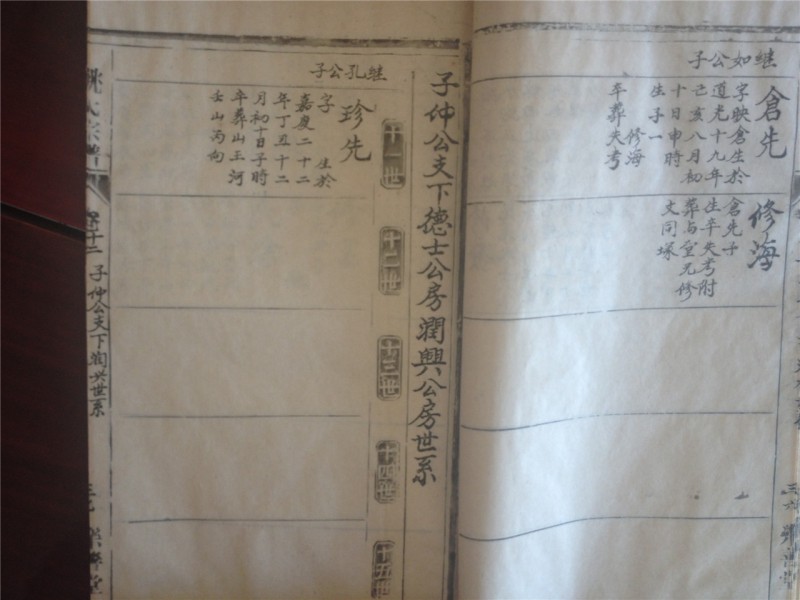 継如公子
倉先
字映倉生於
道光十九年
己亥八月初
十日申時
生子一
修海
卒葬失考
修海
倉先子
生卒失考附
葬与堂兄修
文同塚
子仲公支下德士公房潤興公房世系
十一世
十二世
十三世
十四世
十五世
継孔公子
珍先
字 生於
嘉慶二十二
年丁丑十二
月初十日子時
卒葬山王河
壬山丙向
卷十二 子仲公支下潤兴世系